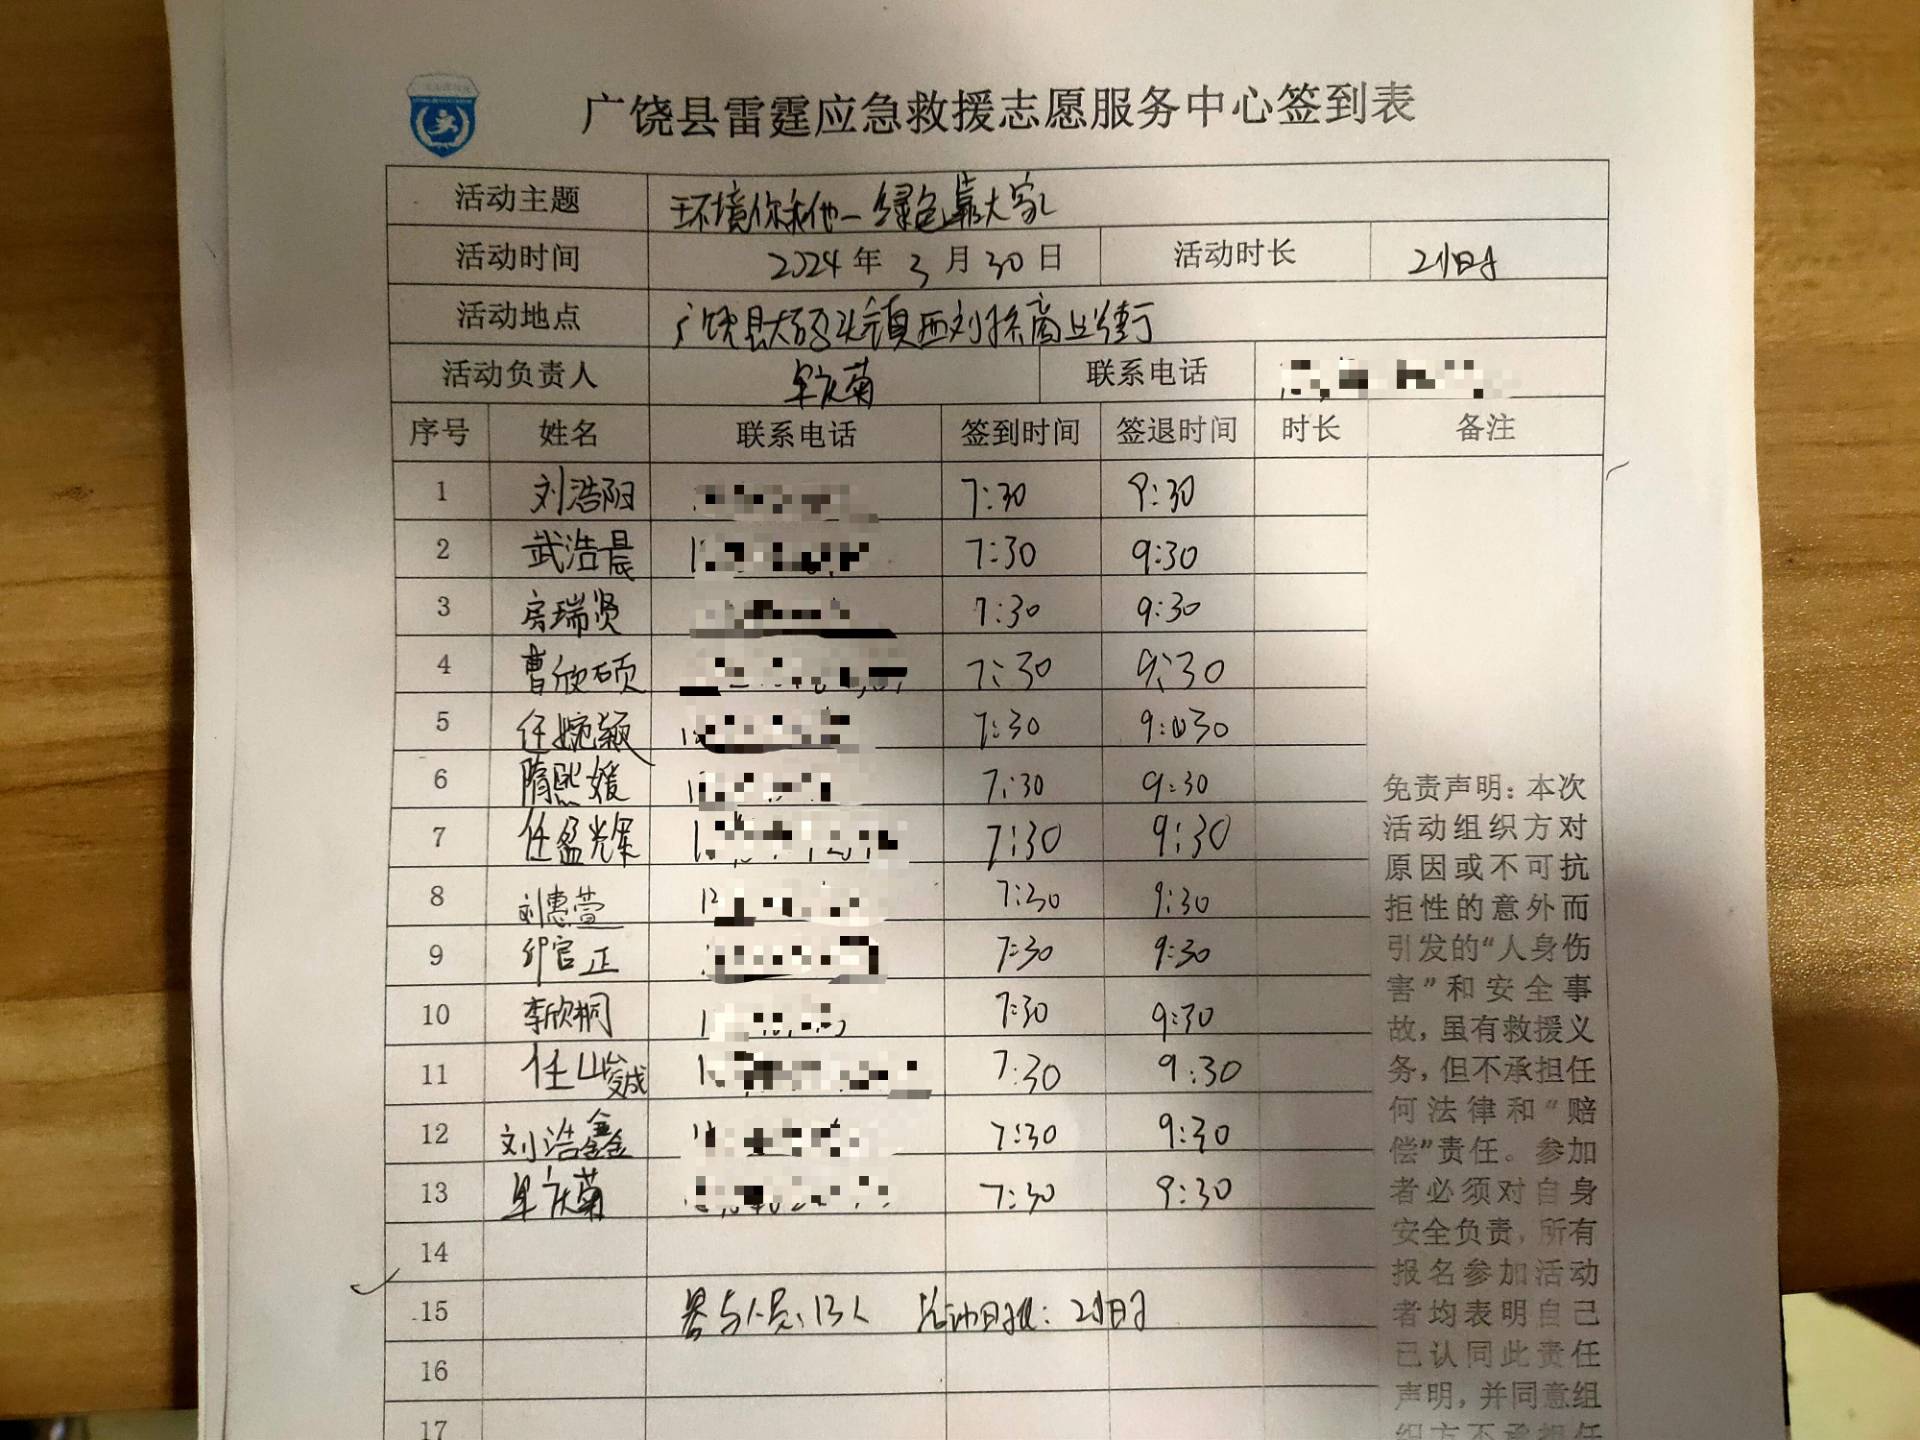 广饶县雷霆应急救援志愿服务中心签到表
活动主题 环境你和他一绿色靠大家
活动时间 2024年3月30日 活动时长 2小时
活动地点 广饶县大码头镇西刘桥商业街
活动负责人 牟庆菊 联系电话
序号 姓名 联系电话 签到时间 签退时间 时长 备注
1 刘浩阳 7:30 9:30
2 武浩晨 7:30 9:30
3 房瑞贤 7:30 9:30
4 曹欣硕 7:30 9:30
5 任婉颖 7:30 9:30
6 隋熙媛 7:30 9:30
7 任孟光辉 7:30 9:30
8 刘惠萱 7:30 9:30
9 官正 7:30 9:30
10 李欣桐 7:30 9:30
11 任峻诚 7:30 9:30
12 刘浩鑫 7:30 9:30
13 牟庆菊 7:30 9:30
14
15 参与人员:13人 活动时长:2小时
16
17
免责声明：本次
活动组织方对
原因或不可抗
拒性的意外而
引发的“人身伤
害”和安全事
故，虽有救援义
务，但不承担任
何法律和“赔
偿”责任。参加
者必须对自身
安全负责，所有
报名参加活动
者均表明自己
已认同此责任
声明，并同意组
织方不承担任